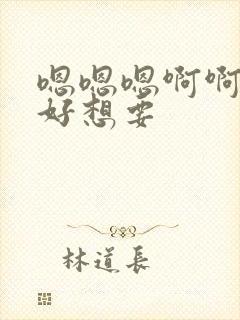 嗯嗯嗯啊啊
好想要
林道長